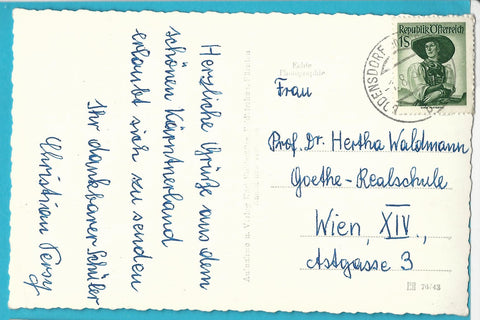 Herzliche Grüße aus dem
schönen Kärntnerland
erlaubt sich zu senden
Ihr dankbarer Schüler
Christian Persy
Echte
Photographie
Republik Österreich
1S
BODENSDORF
Frau
Prof. Dr. Hertha Waldmann
Goethe-Realschule
Wien, XIV.,
Astgasse 3